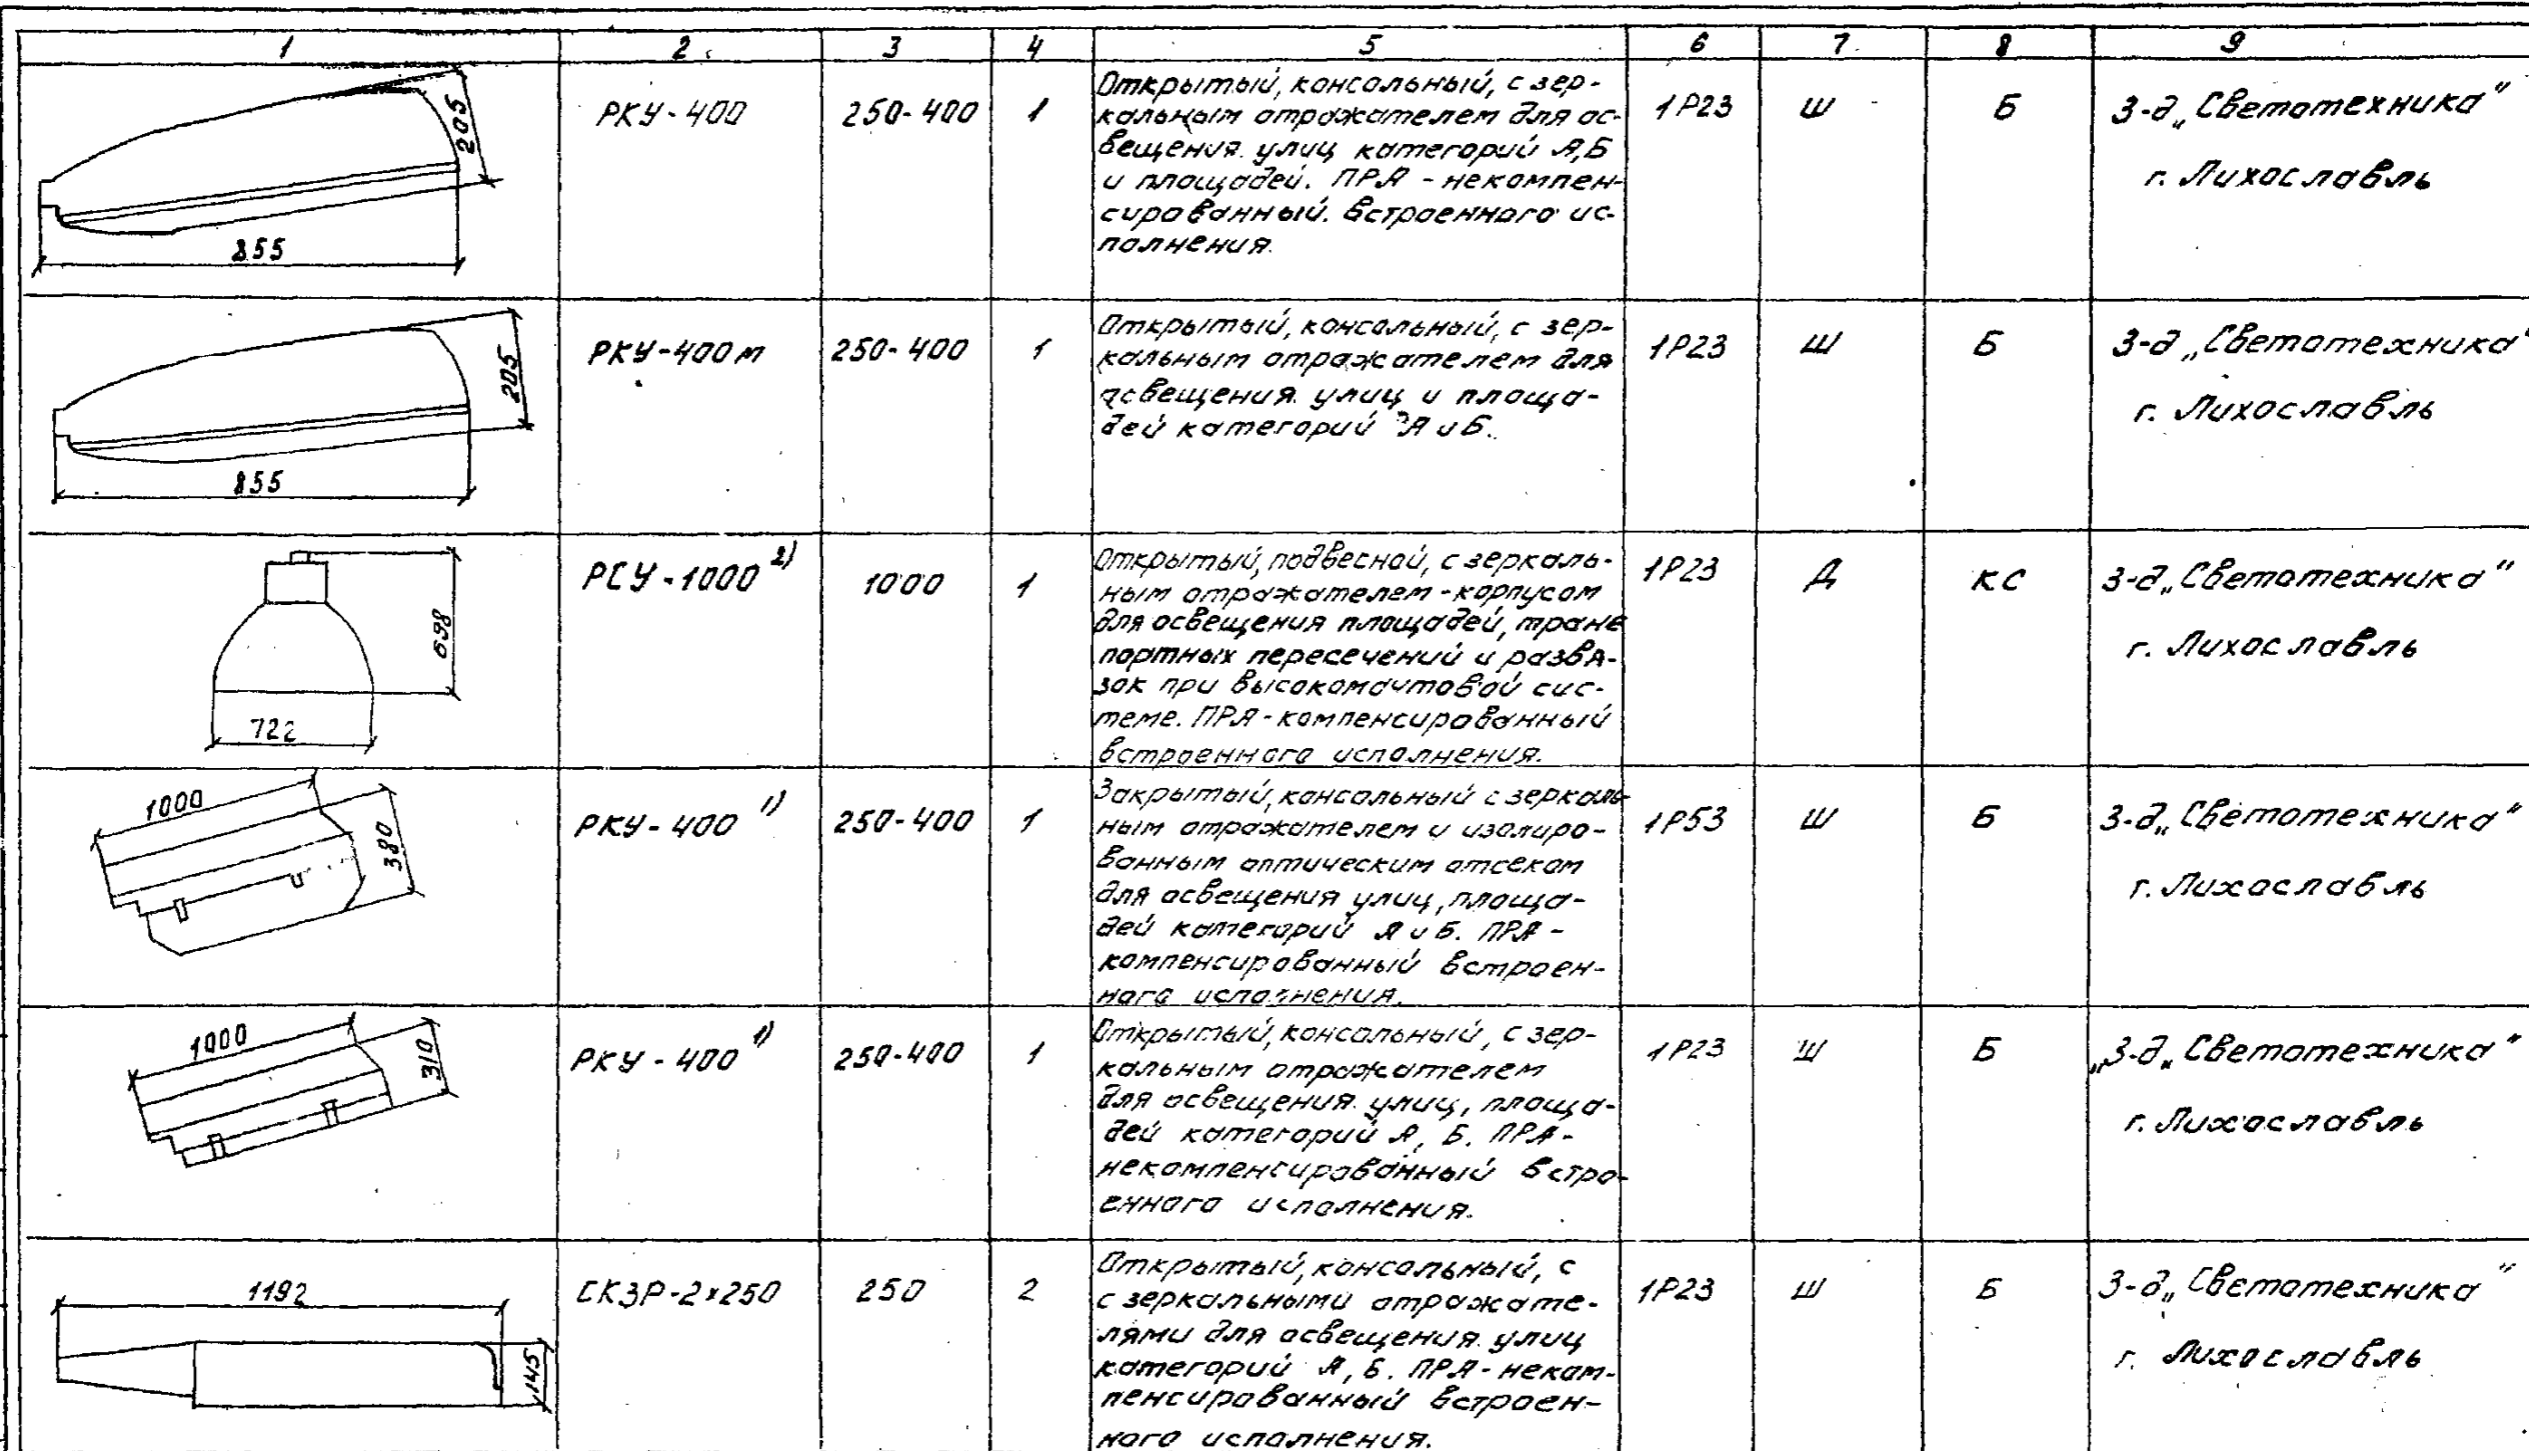 1 2 3 4 5 6 7 8 9
205
855
РКУ-400
250-400
1
Открытый, консольный, с зер-
кальным отражателем для ос-
вещения улиц категорий А, Б
и площадей. ПРА - некомпен-
сированный. встроенного ис-
полнения.
1Р23
Ш
Б
З-д „Светотехника"
г. Лихославль
205
855
РКУ-400м
250-400
1
Открытый, консольный, с зер-
кальным отражателем для
освещения улиц и площа-
дей категорий А и Б.
1Р23
Ш
Б
З-д „Светотехника"
г. Лихославль
698
722
РСУ-1000 2)
1000
1
Открытый, подвесной, с зеркаль-
ным отражателем-корпусом
для освещения площадей, транс
портных пересечений и развя-
зок при высокомачтовой сис-
теме. ПРА-компенсированный
встроенного исполнения.
1Р23
Д
КС
З-д „Светотехника"
г. Лихославль
1000
380
РКУ-400 1)
250-400
1
Закрытый, консольный с зеркаль-
ным отражателем и изолиро-
ванным оптическим отсеком
для освещения улиц, площа-
дей категорий А и Б. ПРА-
компенсированный встроен-
ного исполнения.
1Р53
Ш
Б
З-д „Светотехника"
г. Лихославль
1000
310
РКУ-400 1)
250-400
1
Открытый, консольный, с зер-
кальным отражателем
для освещения улиц, площа-
дей категорий А, Б. ПРА-
некомпенсированный встро-
енного исполнения.
1Р23
Ш
Б
„З-д „Светотехника"
г. Лихославль
1192
145
СКЗР-2х250
250
2
Открытый, консольный, с
с зеркальными отражате-
лями для освещения улиц
категорий А, Б. ПРА-неком-
пенсированный встроен-
ного исполнения.
1Р23
Ш
Б
З-д „Светотехника"
г. Лихославль